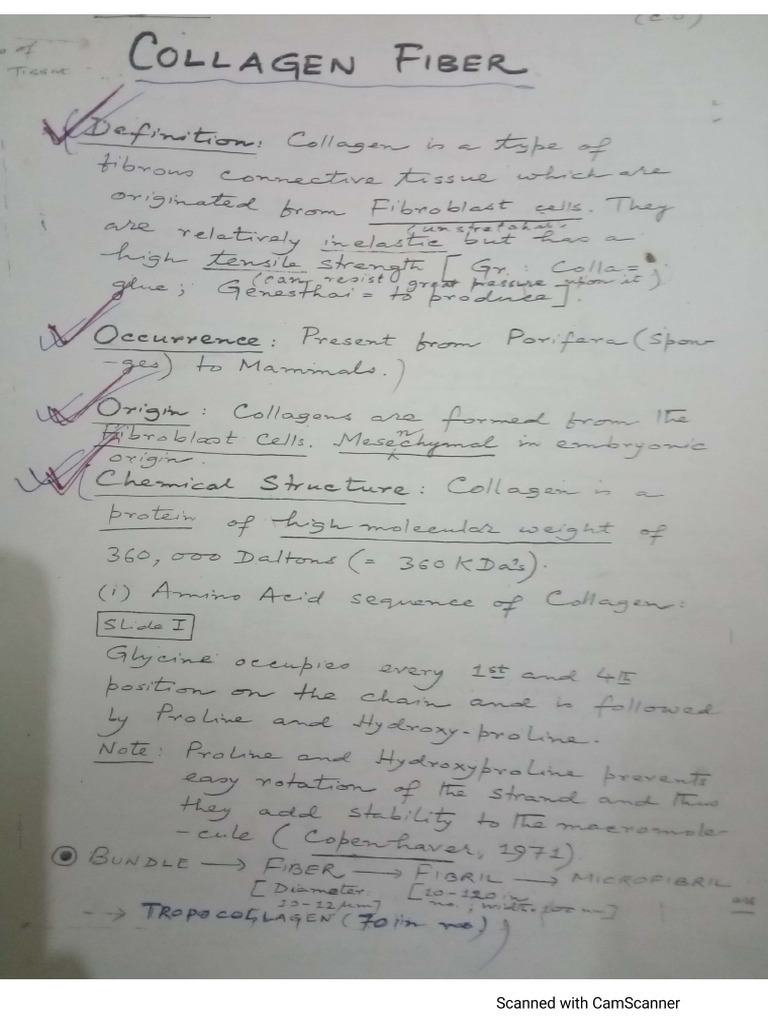 (C.U)
o of
Tissue
COLLAGEN FIBER
Definition: Collagen is a type of
fibrous connective tissue which are
originated from Fibroblast cells. They
are relatively inelastic but has a
high tensile strength [Gr.: Colla =
(can resist great pressure upon it)
glue; Genesthai = to produce].
Occurrence: Present from Porifera (Spon-
-ges) to Mammals.)
Origin: Collagens are formed from the
Fibroblast Cells. Mesenchymal in embryonic
origin.
(Chemical Structure: Collagen is a
protein of high molecular weight of
360,000 Daltons (= 360 KDa's).
(i) Amino Acid sequence of Collagen:
Slide I
Glycine occupies every 1st and 4th
position on the chain and is followed
by Proline and Hydroxy-proline.
Note: Proline and Hydroxyproline prevents
easy rotation of the strand and thus
they add stability to the macromole-
-cule (Copenhaver, 1971).
BUNDLE → FIBER → FIBRIL → MICROFIBRIL
[Diameter [20-120 in
10-12 µm] no.; width
--> TROPOCOLLAGEN (70 in no)
Scanned with CamScanner